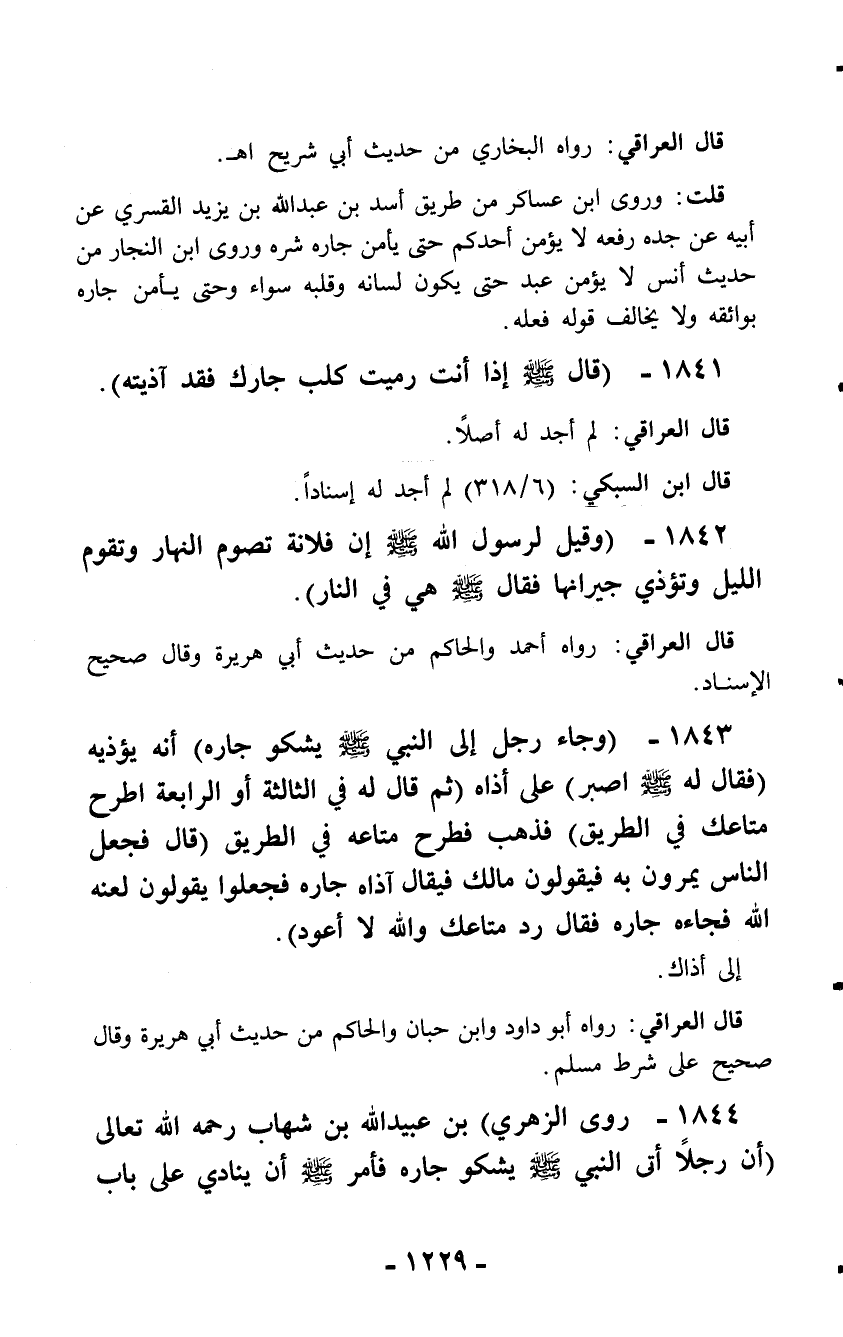 قال العراقي: رواه البخاري من حديث أبي شريح اهـ.
قلت: وروى ابن عساكر من طريق أسد بن عبدالله بن يزيد القسري عن
أبيه عن جده رفعه لا يؤمن أحدكم حتى يأمن جاره شره وروى ابن النجار من
حديث أنس لا يؤمن عبد حتى يكون لسانه وقلبه سواء وحتى يـأمن جاره
بوائقه ولا يخالف قوله فعله.
١٨٤١ - (قال ﷺ إذا أنت رميت كلب جارك فقد آذيته).
قال العراقي: لم أجد له أصلاً.
قال ابن السبكي: (٣١٨/٦) لم أجد له إسناداً.
١٨٤٢ - (وقيل لرسول الله ﷺ إن فلانة تصوم النهار وتقوم
الليل وتؤذي جيرانها فقال ﷺ هي في النار).
قال العراقي: رواه أحمد والحاكم من حديث أبي هريرة وقال صحيح
الإسنـاد.
١٨٤٣ - (وجاء رجل إلى النبي ﷺ يشكو جاره) أنه يؤذيه
(فقال له ﷺ اصبر) على أذاه (ثم قال له في الثالثة أو الرابعة اطرح
متاعك في الطريق) فذهب فطرح متاعه في الطريق (قال فجعل
الناس يمرون به فيقولون مالك فيقال آذاه جاره فجعلوا يقولون لعنه
الله فجاءه جاره فقال رد متاعك والله لا أعود).
إلى أذاك.
قال العراقي: رواه أبو داود وابن حبان والحاكم من حديث أبي هريرة وقال
صحيح على شرط مسلم.
١٨٤٤ - روى الزهري) بن عبيدالله بن شهاب رحمه الله تعالى
(أن رجلاً أتى النبي ﷺ يشكو جاره فأمر ﷺ أن ينادي على باب
- ١٢٢٩ -